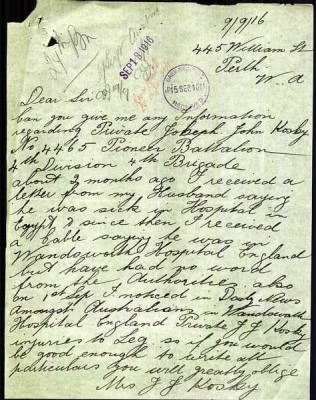 9/9/16
445 William St
Perth
W. A
SEP 18 1916
15 SEP 1916
Dear Sir
Can you give me any Information
regarding Private Joseph John Hosky
No 4465 Pioneer Battalion
4th Division 4th Brigade
about 2 months ago I received a
letter from my Husband saying
he was sick in Hospital in
Egypt & since then I received
a Cable saying he was in
Wandsworth Hospital England
but have had no word
from the Authorities also
on 1st Sep I noticed in Daily News
Amongst Australians in Wandsworth
Hospital England Private J J Hosky
injuries to Leg so if you would
be good enough to write all
particulars you will greatly oblige
Mrs J J Hosky